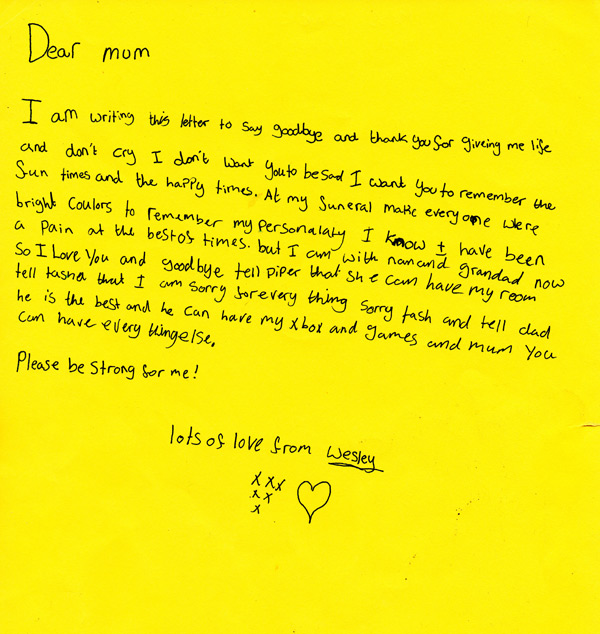 Dear mum
I am writing this letter to say goodbye and thank you for giveing me life
and don't cry I don't want you to be sad I want you to remember the
fun times and the happy times. At my funeral make everyone were
bright Coulors to remember my personalaty I know I have been
a pain at the best of times. but I am with nan and grandad now
So I Love You and goodbye tell piper that she can have my room
tell tasha that I am sorry for every thing sorry tash and tell dad
he is the best and he can have my xbox and games and mum you
can have every thing else.
Please be strong for me!
lots of love from Wesley
x x x
x x
x